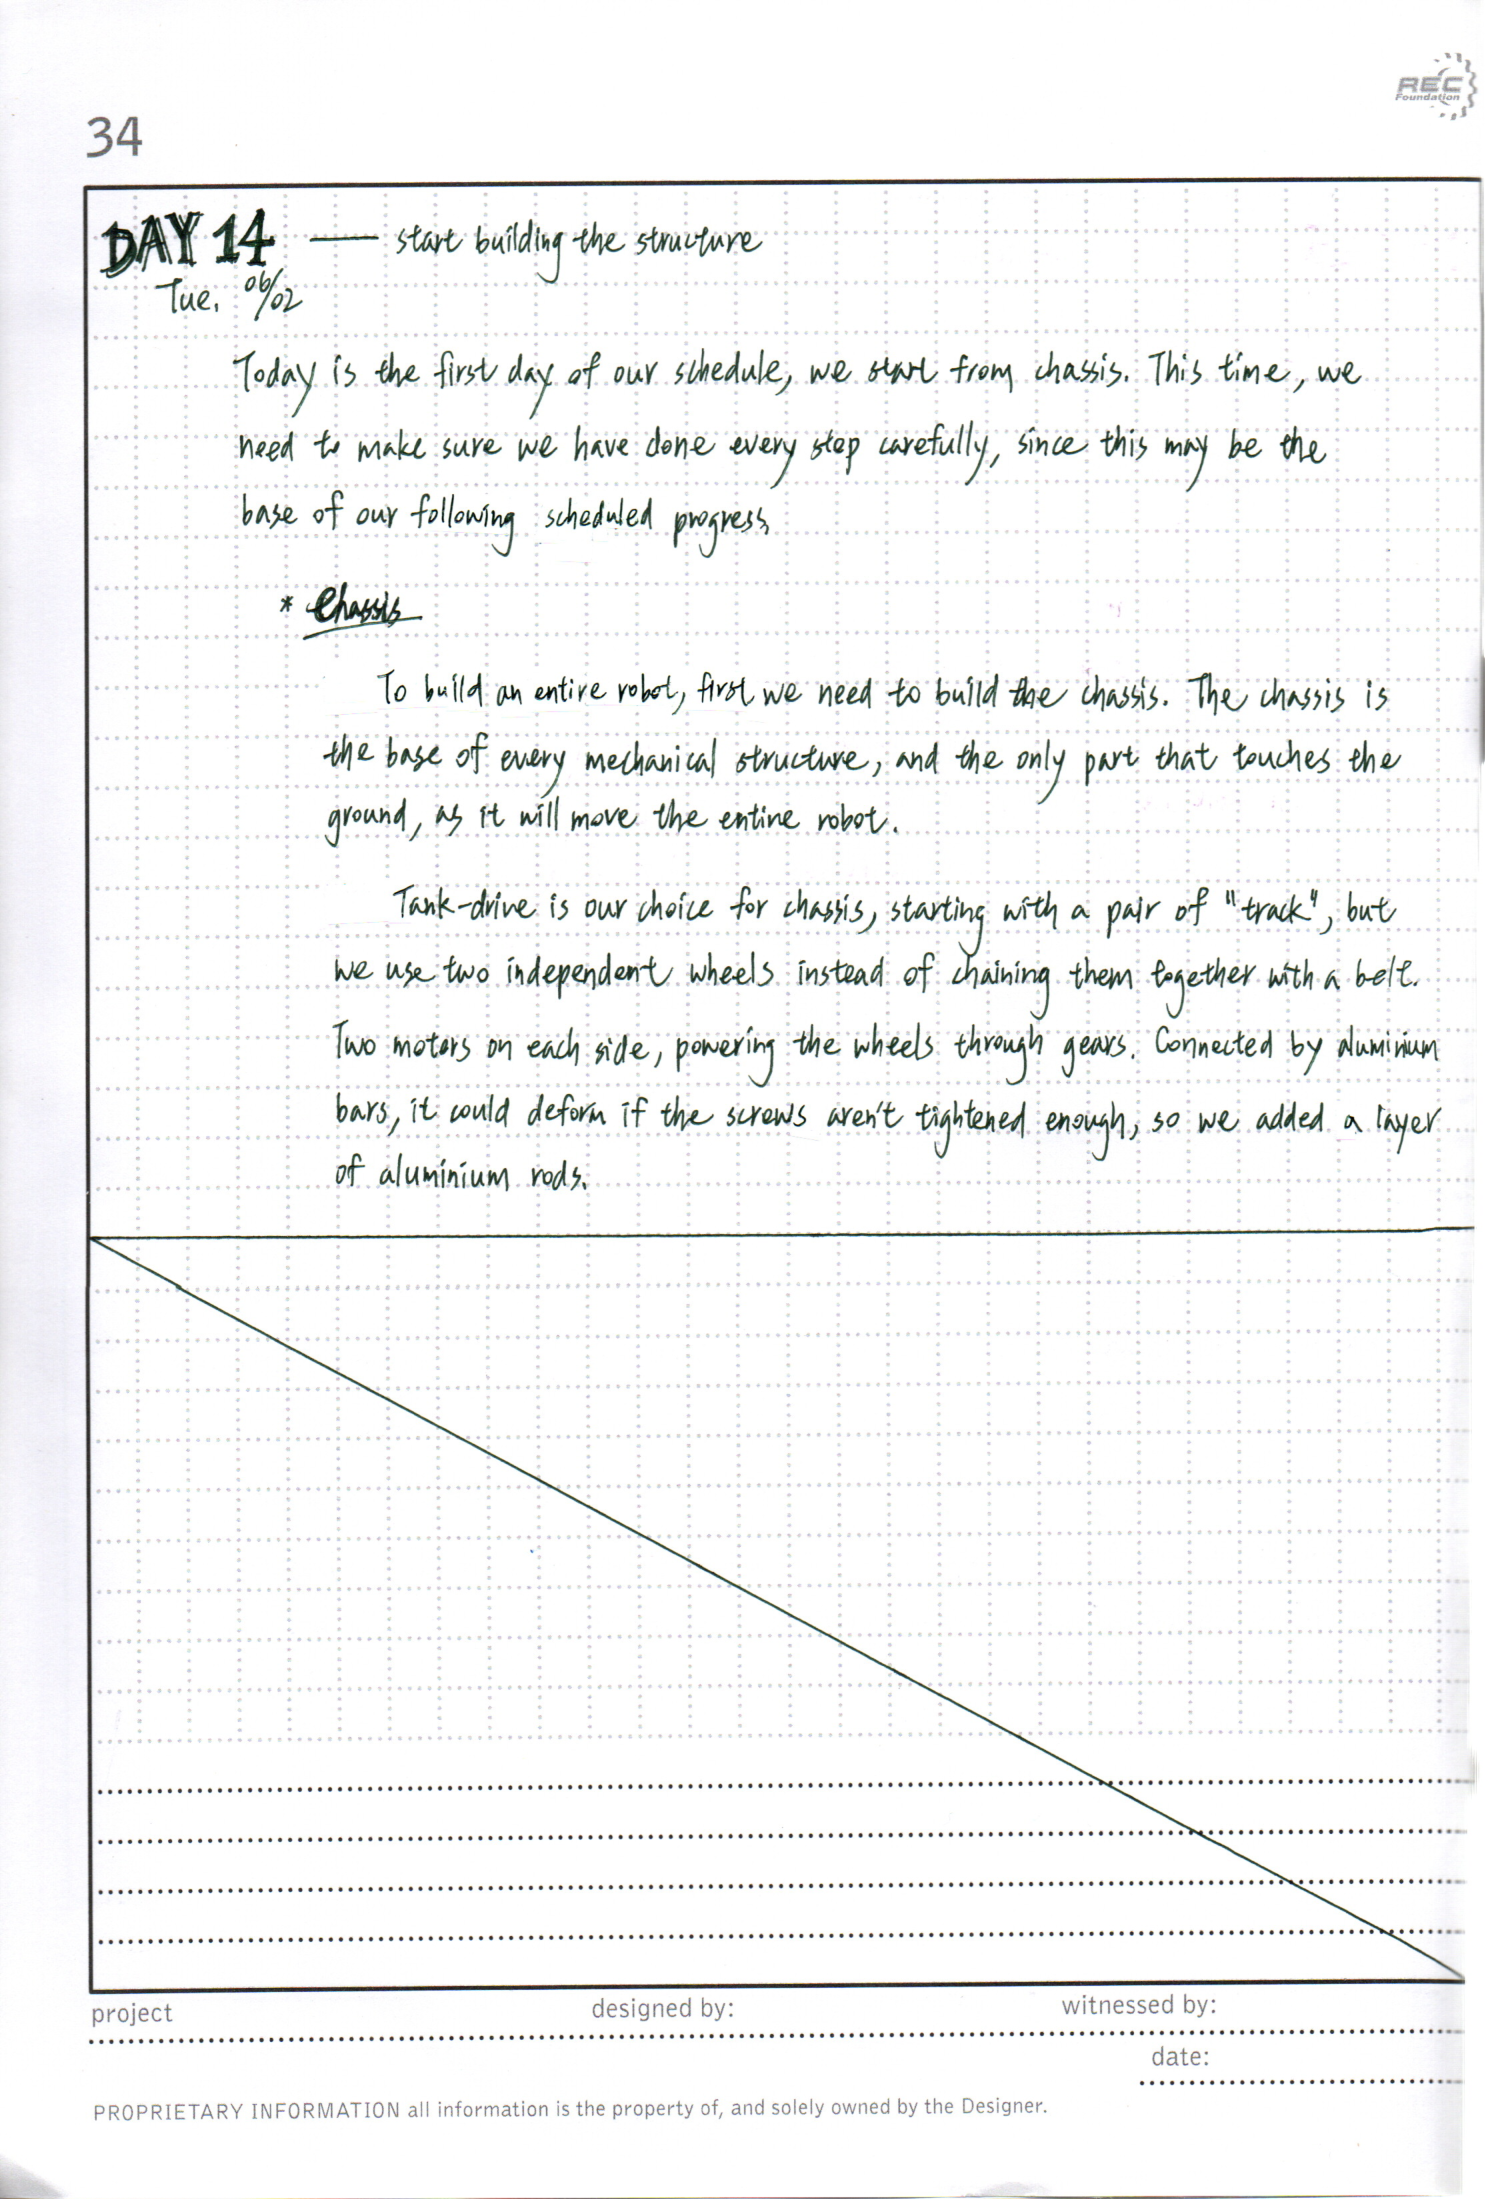 REC
Foundation
34
DAY 14 — start building the structure
Tue. 06/02
Today is the first day of our schedule, we start from chassis. This time, we
need to make sure we have done every step carefully, since this may be the
base of our following scheduled progress.
* Chassis
To build an entire robot, first we need to build the chassis. The chassis is
the base of every mechanical structure, and the only part that touches the
ground, as it will move the entire robot.
Tank-drive is our choice for chassis, starting with a pair of "track", but
we use two independent wheels instead of chaining them together with a belt.
Two motors on each side, powering the wheels through gears. Connected by aluminium
bars, it could deform if the screws aren't tightened enough, so we added a layer
of aluminium rods.
project designed by: witnessed by:
date:
PROPRIETARY INFORMATION all information is the property of, and solely owned by the Designer.